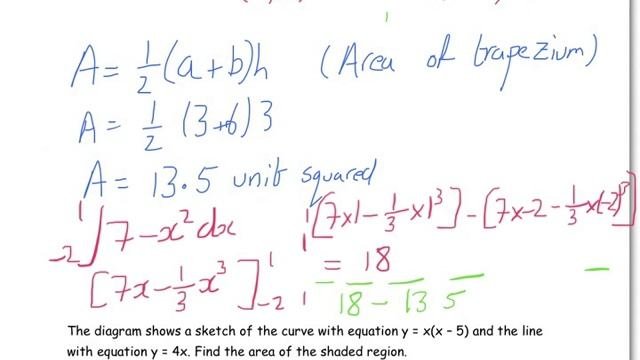 A = 1/2 (a+b)h (Area of trapezium)
A = 1/2 (3+6)3
A = 13.5 unit squared
∫₋₂¹ 7-x² dx [7x1-1/3x1³]-[7x-2-1/3x(-2)³]
[7x-1/3x³]₋₂¹ = 18
18 - 13 5
The diagram shows a sketch of the curve with equation y = x(x – 5) and the line
with equation y = 4x. Find the area of the shaded region.